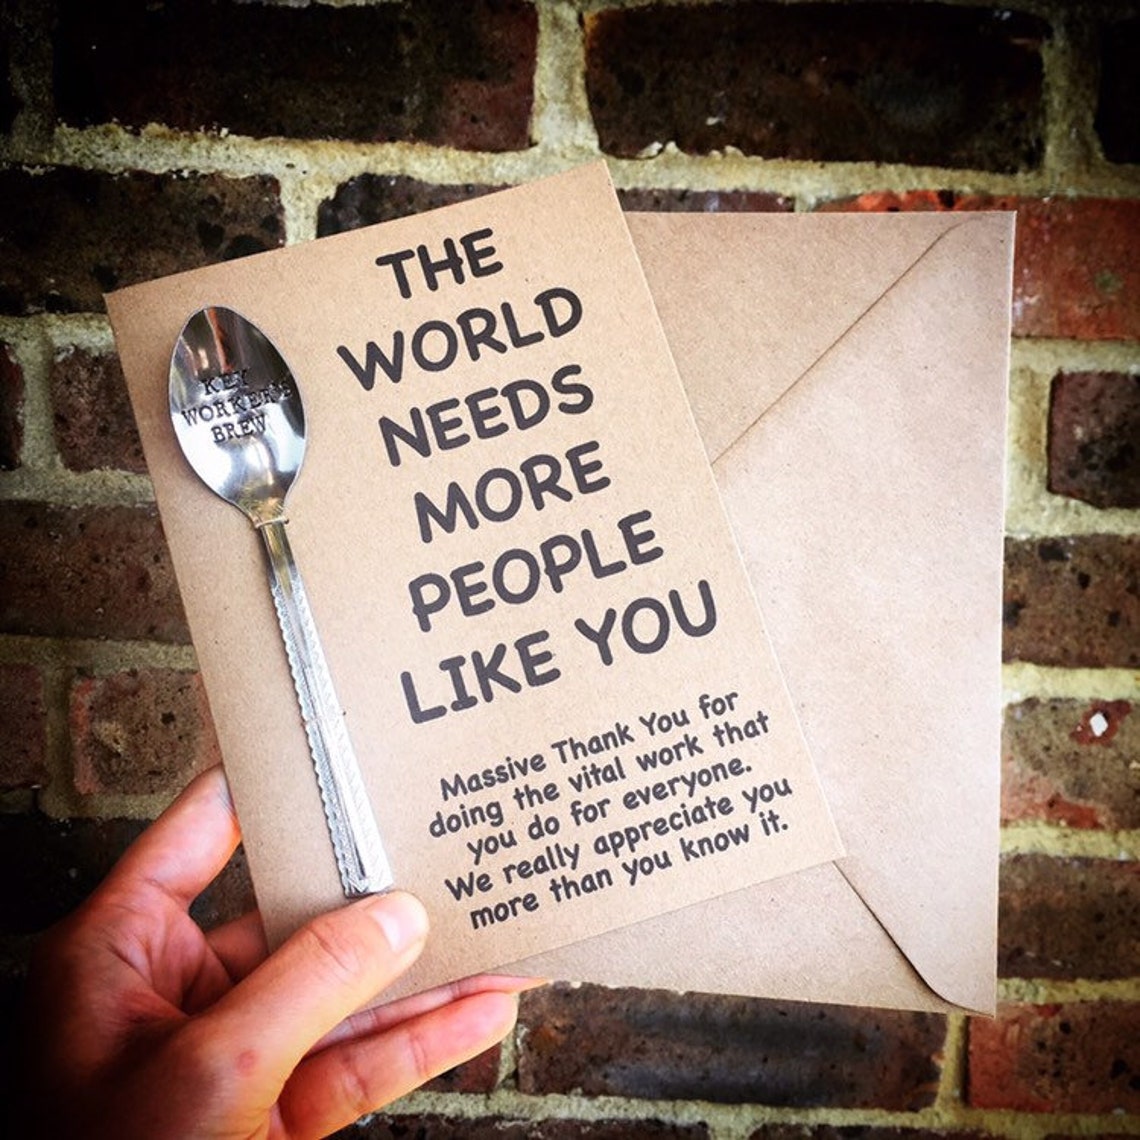 KEY
WORKER'S
BREW
THE
WORLD
NEEDS
MORE
PEOPLE
LIKE YOU
Massive Thank You for
doing the vital work that
you do for everyone.
We really appreciate you
more than you know it.